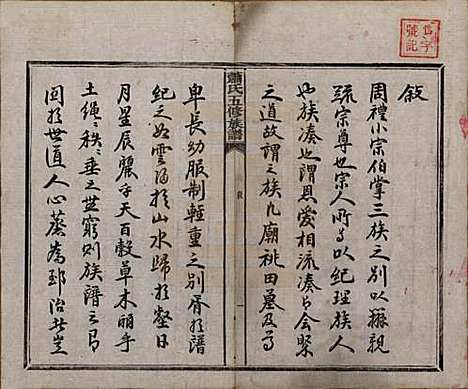 敘
周禮小宗伯掌三族之別以辨親
疏宗尊也宗人所為以紀理族人
也族湊也謂恩愛相流湊也會聚
之道故謂之族凡廟祧田墓及為
蕭氏五修族譜
敘
一
卑長幼服制輕重之別胥於譜
紀之如雲歸於山水歸於壑日
月星辰麗乎天百穀草木丽乎
土繩之秩之垂之無窮則族譜之有
回於世道人心蔡為郅治者豈
字
號記